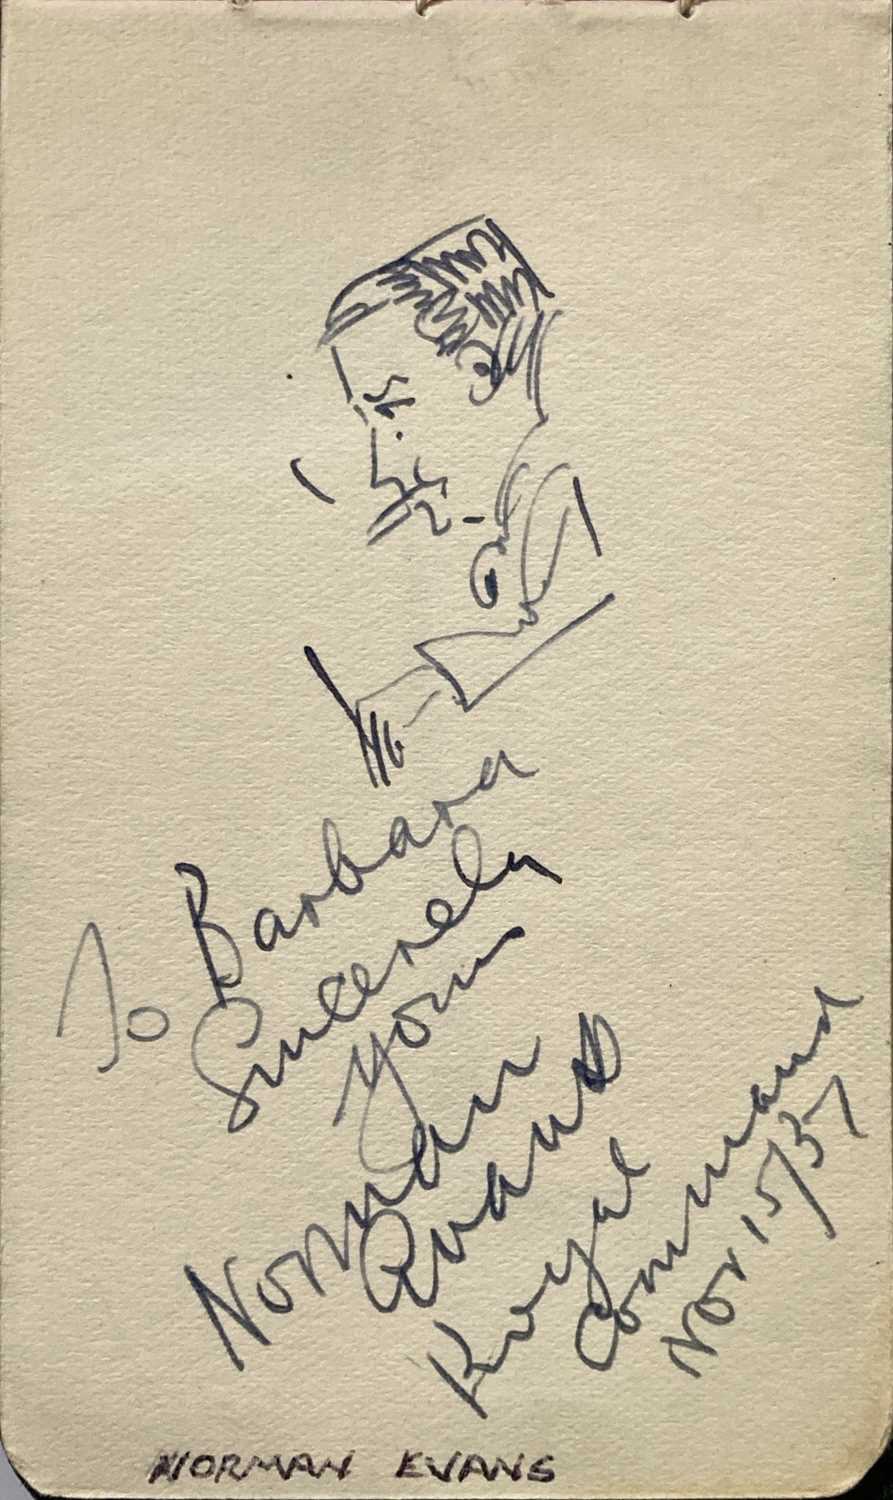 To Barbara
Sincerely
Yours
Norman
Evans
Royal
Command
Nov 15/37
NORMAN EVANS